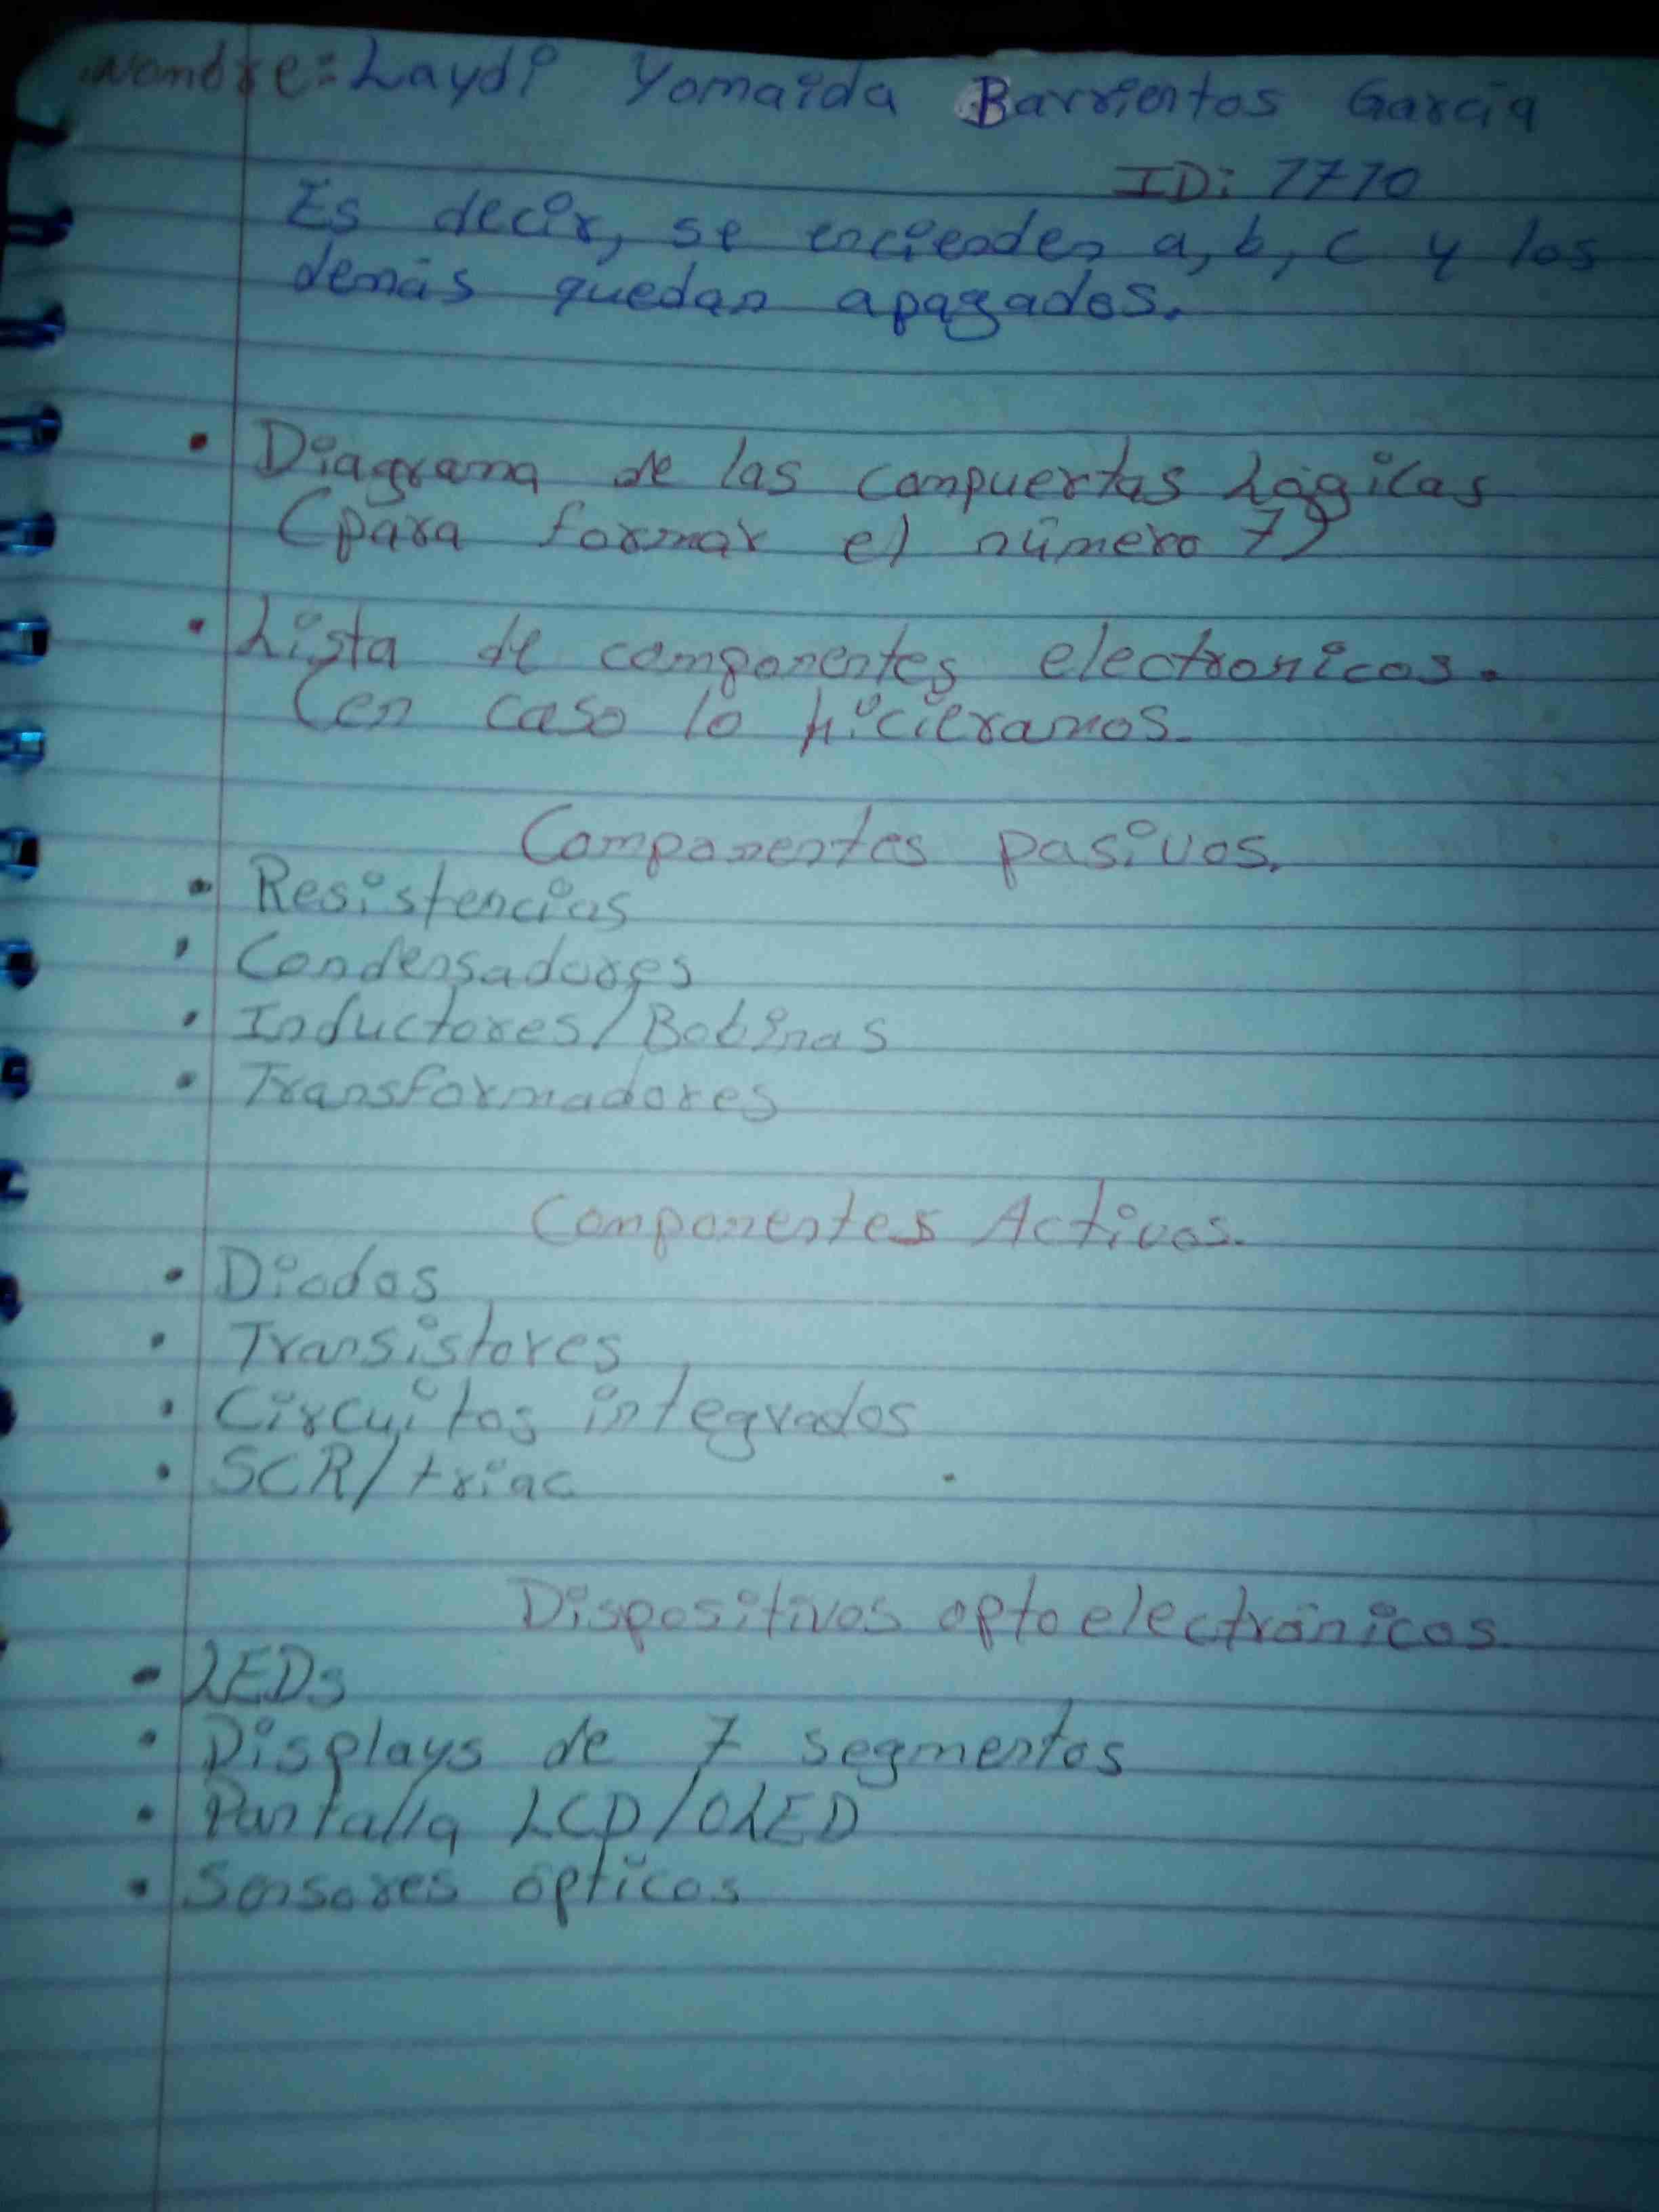 Nombre: Laydi Yomaida Barrientos Garcia
ID: 7770
Es decir, se encienden a, b, c y los
demás quedan apagados.
• Diagrama de las compuertas Lógicas
(para formar el número 7)
• Lista de componentes electronicos.
(en caso lo hicieramos.
Componentes pasivos.
• Resistencias
• Condensadores
• Inductores/Bobinas
• Transformadores
Componentes Activos.
• Diodos
• Transistores
• Circuitos integrados
• SCR/triac
Dispositivos optoelectrónicos
• LEDs
• Displays de 7 segmentos
• Pantalla LCD/OLED
• Sensores ópticos